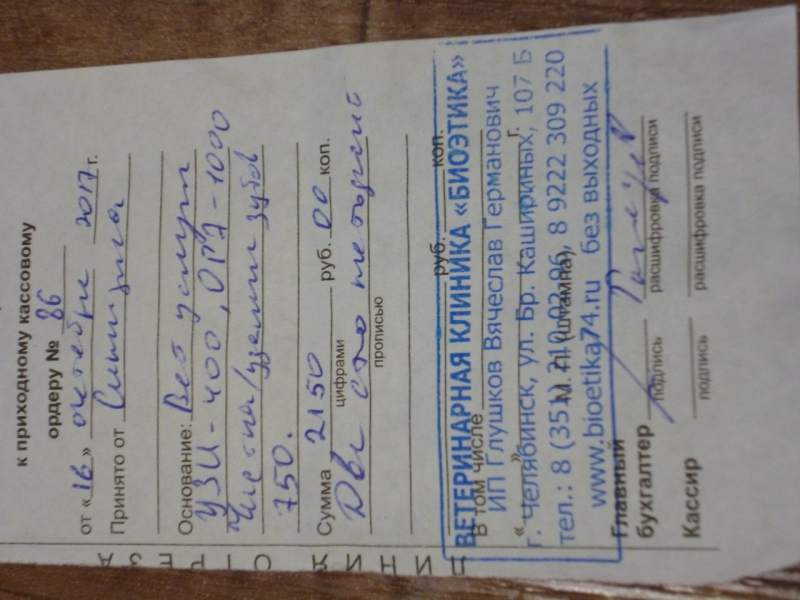 к приходному кассовому
ордеру № 86
от «16» октября 2017 г.
Принято от
Основание: Вет услуги
УЗИ - 400, ОРЗ - 1000
Чистка/удаление зубов
750.
Сумма 2150 руб. 00 коп.
цифрами
Две сто
прописью
руб. коп.
В том числе
ВЕТЕРИНАРНАЯ КЛИНИКА «БИОЭТИКА»
ИП Глушков Вячеслав Германович
г. Челябинск, ул. Бр. Кашириных, 107 Б
« » г.
М. П. (штампа)
тел.: 8 (351) 210 02 06, 8 9222 309 220
www.bioetika74.ru без выходных
Главный
бухгалтер
подпись расшифровка подписи
Кассир
подпись расшифровка подписи